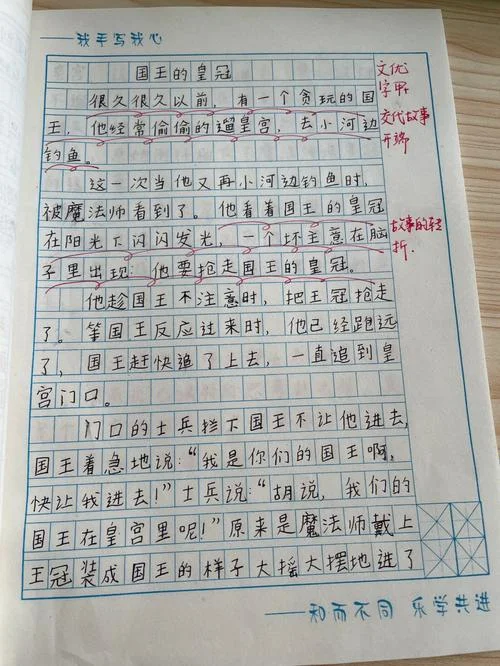 我手写我心
国王的皇冠
很久很久以前,有一个贪玩的国
王,他经常偷偷的遛皇宫,去小河边
钓鱼。
这一次当他又再小河边钓鱼时,
被魔法师看到了。他看着国王的皇冠
在阳光下闪闪发光,一个坏主意在脑
子里出现:他要抢走国王的皇冠。
他趁国王不注意时,把王冠抢走
了。等国王反应过来时,他已经跑远
了,国王赶快追了上去,一直追到皇
宫门口。
门口的士兵拦下国王不让他进去,
国王着急地说:“我是你们的国王啊,
快让我进去!”士兵说:“胡说,我们的
国王在皇宫里呢!”原来是魔法师戴上
王冠装成国王的样子大摇大摆地进了
文优
字甲
交代故事
开端
故事的转
折.
和而不同 乐学共进